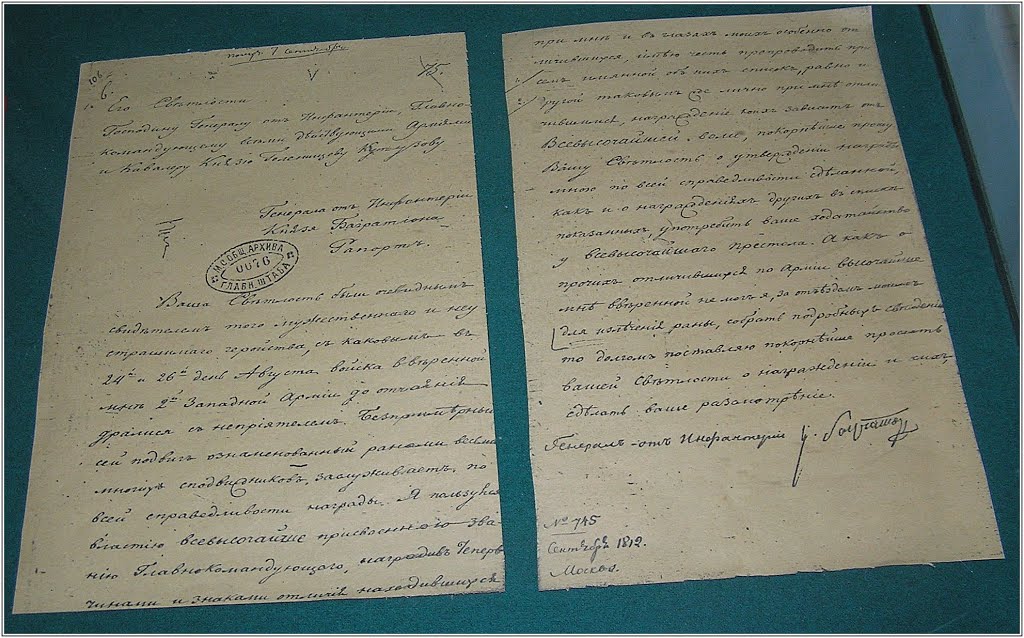 получ. 7 Сентября
75.
Его Свѣтлости
Господину Генералу отъ Инфантеріи, Главно-
командующему всѣми дѣйствующими Арміями
и Кавалеру Князю Голенищеву Кутузову
Генерала отъ Инфантеріи
Князя Багратіона
Рапортъ.
М.С. ОБЩ. АРХИВА
0076
ГЛАВН. ШТАБА
Ваша Свѣтлость были очевиднымъ
свидѣтелемъ того мужественнаго и неу
страшимаго геройства, съ каковымъ въ
24й и 26й день Августа войска ввѣренной
мнѣ 2й Западной Арміи до отчаянія
дрались съ непріятелемъ. Безпримѣрный
сей подвигъ ознаменованный ранами весьма
многихъ сподвижниковъ заслуживаетъ по
всей справедливости награды. Я пользуясь
властію всевысочайше присвоенною зва-
нію Главнокомандующаго, наградивъ теперь
чинами и знаками отличія находившихся
при мнѣ и въ глазахъ моихъ особенно от
личившихся, имѣю честь препроводить при
семъ имянной объ нихъ списокъ, равно и
другой таковымъ не лично при мнѣ отли
чившимся, награжденіе коихъ зависитъ отъ
Всевысочайшей воли, покорнѣйше прошу
Вашу Свѣтлость о утвержденіи наградъ
мною по всей справедливости сдѣланной,
какъ и о награжденіяхъ другихъ въ спискѣ
показанныхъ употребить ваше ходатайство
у всевысочайшаго престола. А какъ о
прочихъ отличившихся по Арміи высочайше
мнѣ ввѣренной не могъ я, за отъѣздомъ моимъ
для излѣченія раны, собрать подробныхъ свѣденій
то долгомъ поставляю покорнѣйше просить
вашей Свѣтлости о награжденіи и ихъ
сдѣлать ваше разсмотрѣніе.
Генералъ-отъ Инфантеріи К. Багратіонъ
№ 745
Сентября 1812.
Москва.